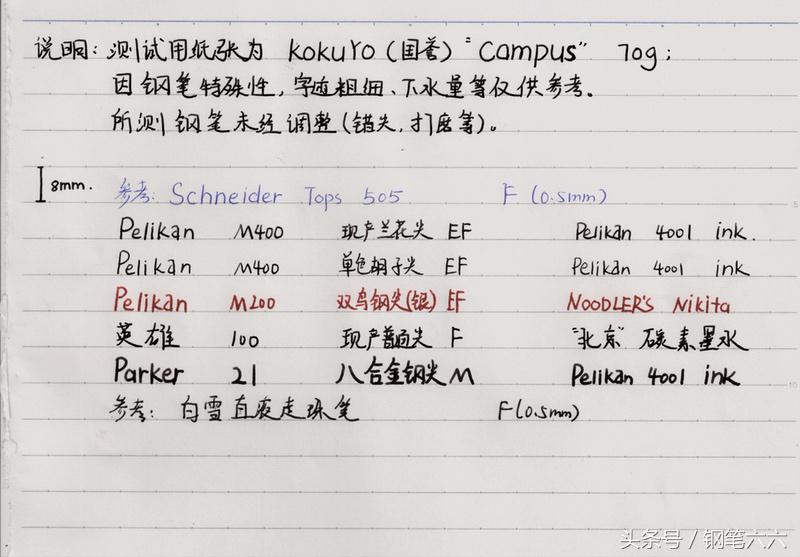 说明: 测试用纸张为 KOKUYO (国誉) "Campus" 70g;
因钢笔特殊性, 字迹粗细、下水量等仅供参考.
所测钢笔未经调整(错尖, 打磨等)。
8mm.
参考: Schneider Tops 505 F (0.5mm)
Pelikan M400 现产兰花尖 EF Pelikan 4001 ink.
Pelikan M400 单色胡子尖 EF Pelikan 4001 ink
Pelikan M200 双鸟钢尖(银) EF NOODLER'S Nikita
英雄 100 现产普通尖 F "北京" 碳素墨水
Parker 21 八合金钢尖 M Pelikan 4001 ink
参考: 白雪直液走珠笔 F(0.5mm)
5
10
头条号 / 钢笔六六